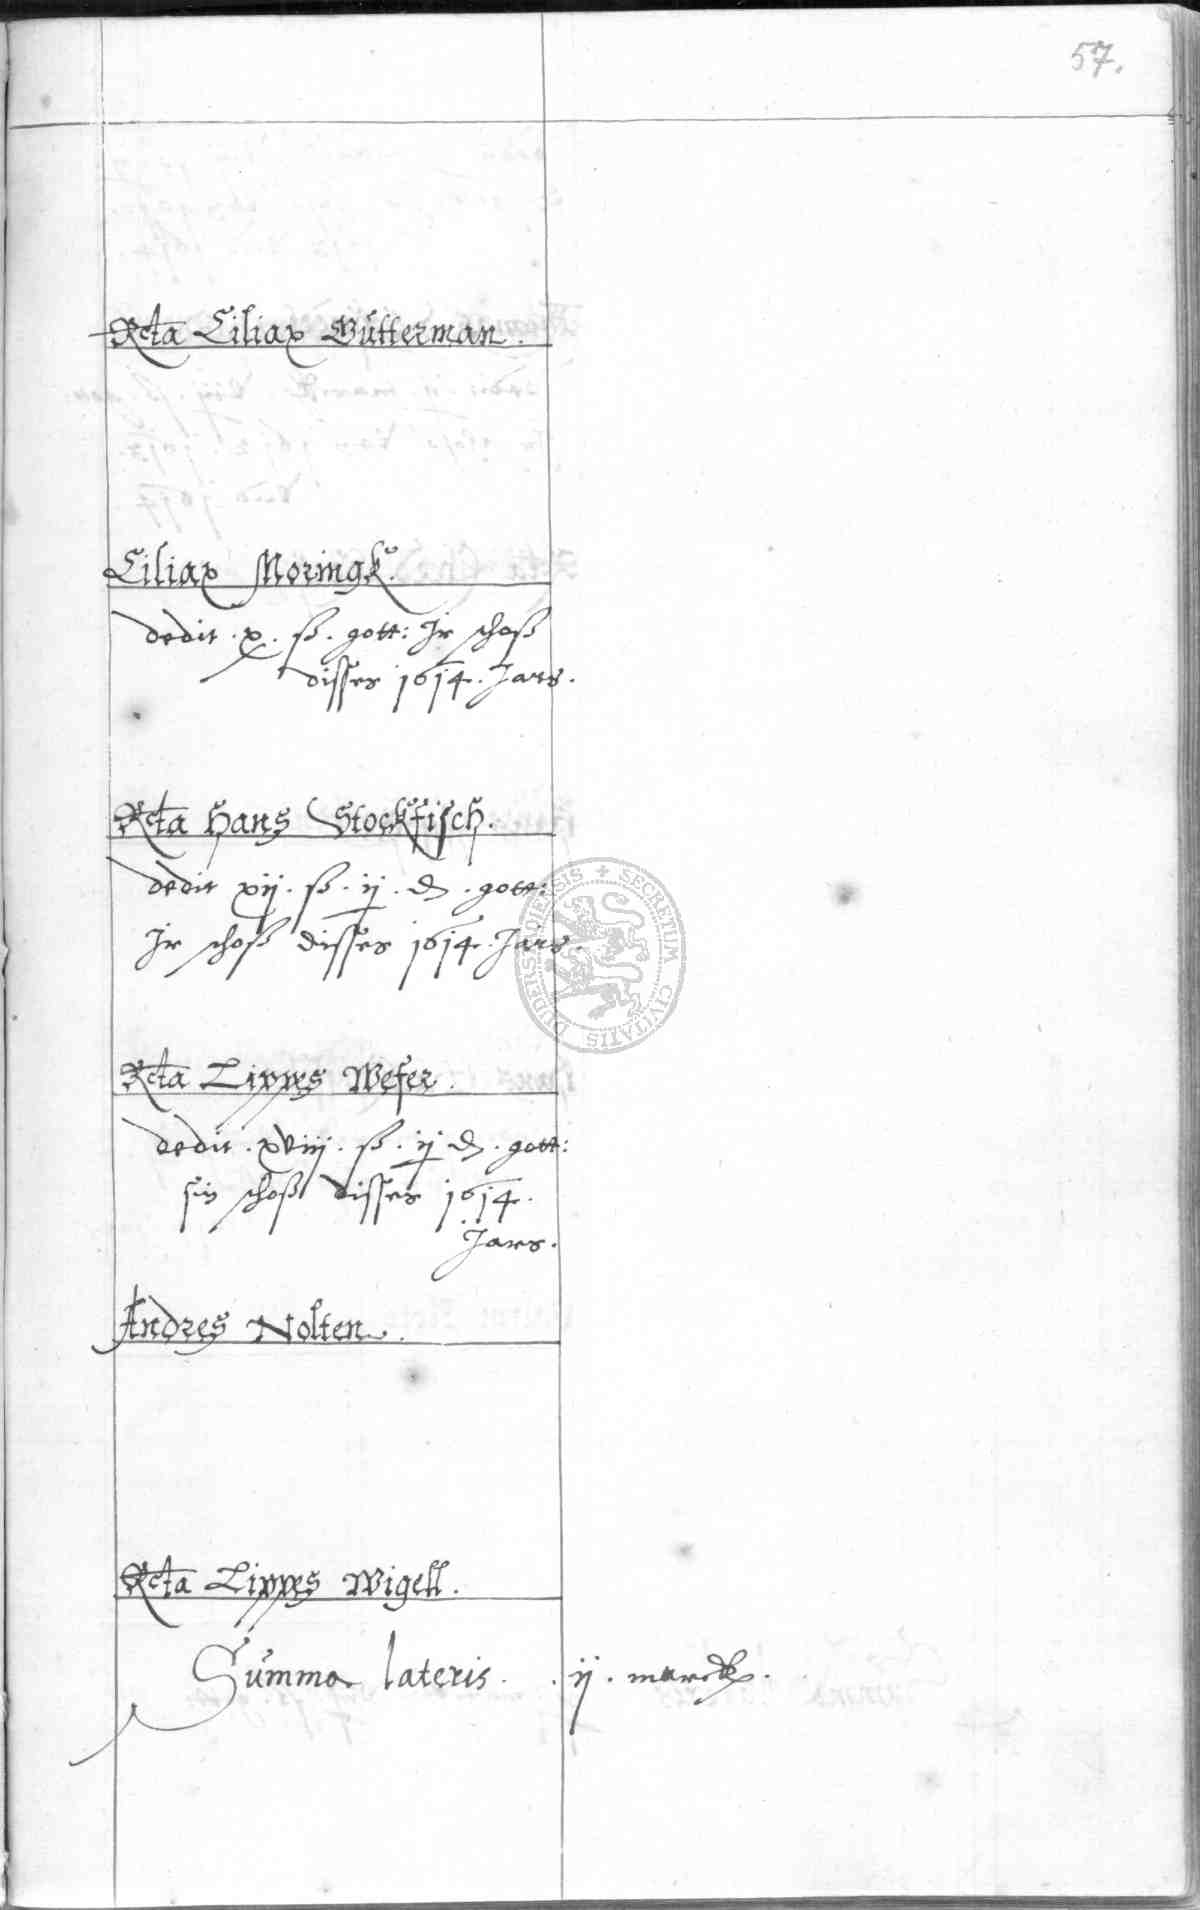 57.
Rcta Ciliax Gütterman.
Ciliax Moringk.
dedit . x . ß . gott: Ir schoß
disses 1614. Jars.
Rcta Hans Stockfisch.
dedit xij . ß . ij . d . gott:
Ir schoß disses 1614. Jars.
Rcta Lippes Wefer.
dedit . xviij . ß . ij d . gott:
sin schoß disses 1614.
Jars.
Andres Nolten.
Rcta Lippes Wigell.
Summa lateris . . ij . marck.
SECRETUM CIVITATIS DUDERSTADIENSIS